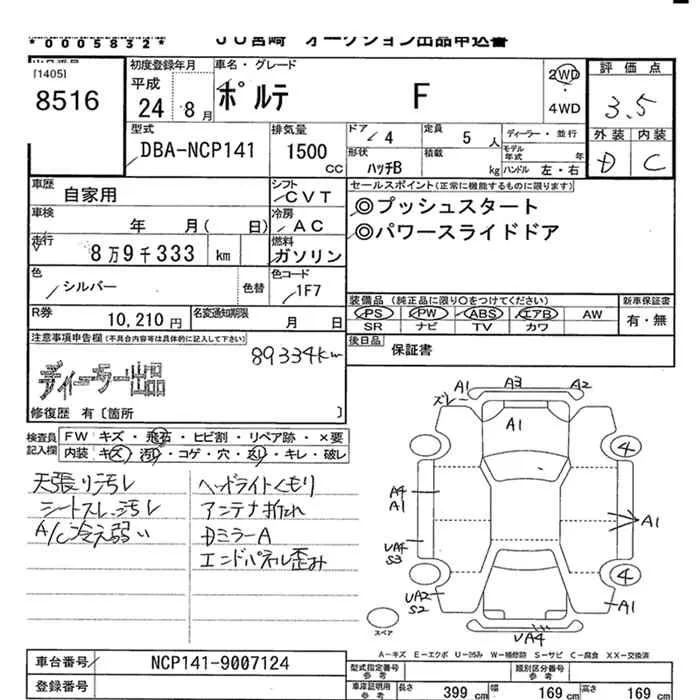 *0005832* JU宮崎 オークション出品申込書
出品番号
[1405]
8516
初度登録年月
平成
24 8月
車名・グレード
ポルテ F
2WD
・
4WD
評価点
3.5
外装 内装
D C
型式
DBA-NCP141
排気量
1500
CC
ドア 4
定員 5 人
ディーラー・並行
形状 ハッチB
積載 kg
モデル年式 年
ハンドル 左・右
車歴 自家用
シフト CVT
車検 年 月( 日)
冷房 AC
走行 8万9千333 km
燃料 ガソリン
色 シルバー 色替
色コード 1F7
R券 10,210円
名変通知期限 月 日
セールスポイント(正常に機能するものに限ります)
◎プッシュスタート
◎パワースライドドア
装備品 (純正品に限り○をつけてください)
PS PW ABS エアB AW
SR ナビ TV カワ
新車保証書
有・無
後日品 保証書
注意事項申告欄(不具合内容等は具体的に記入して下さい)
89334Km
ディーラー出品
修復歴 有〔箇所 〕
検査員記入欄
FW キズ・飛石・ヒビ割・リペア跡・×要
内装 キズ・汚れ・コゲ・穴・凹・キレ・破レ
天張り汚れ
シートスレ、汚レ
A/C冷え弱い
ヘッドライトくもり
アンテナ折れ
DミラーA
エンドパネル歪み
A1 A3 A2
ズレ
A1
4
A4
A1
A1
UA4
S3
4
UA2
S2
A1
UA4
スペア
A-キズ E-エクボ U-凹み W-補修跡 S-サビ C-腐食 XX-交換済
車台番号 NCP141-9007124
登録番号
型式指定番号
参考
類別区分番号
参考
車庫証明用
参考
長さ 399 cm
幅 169 cm
高さ 169 cm